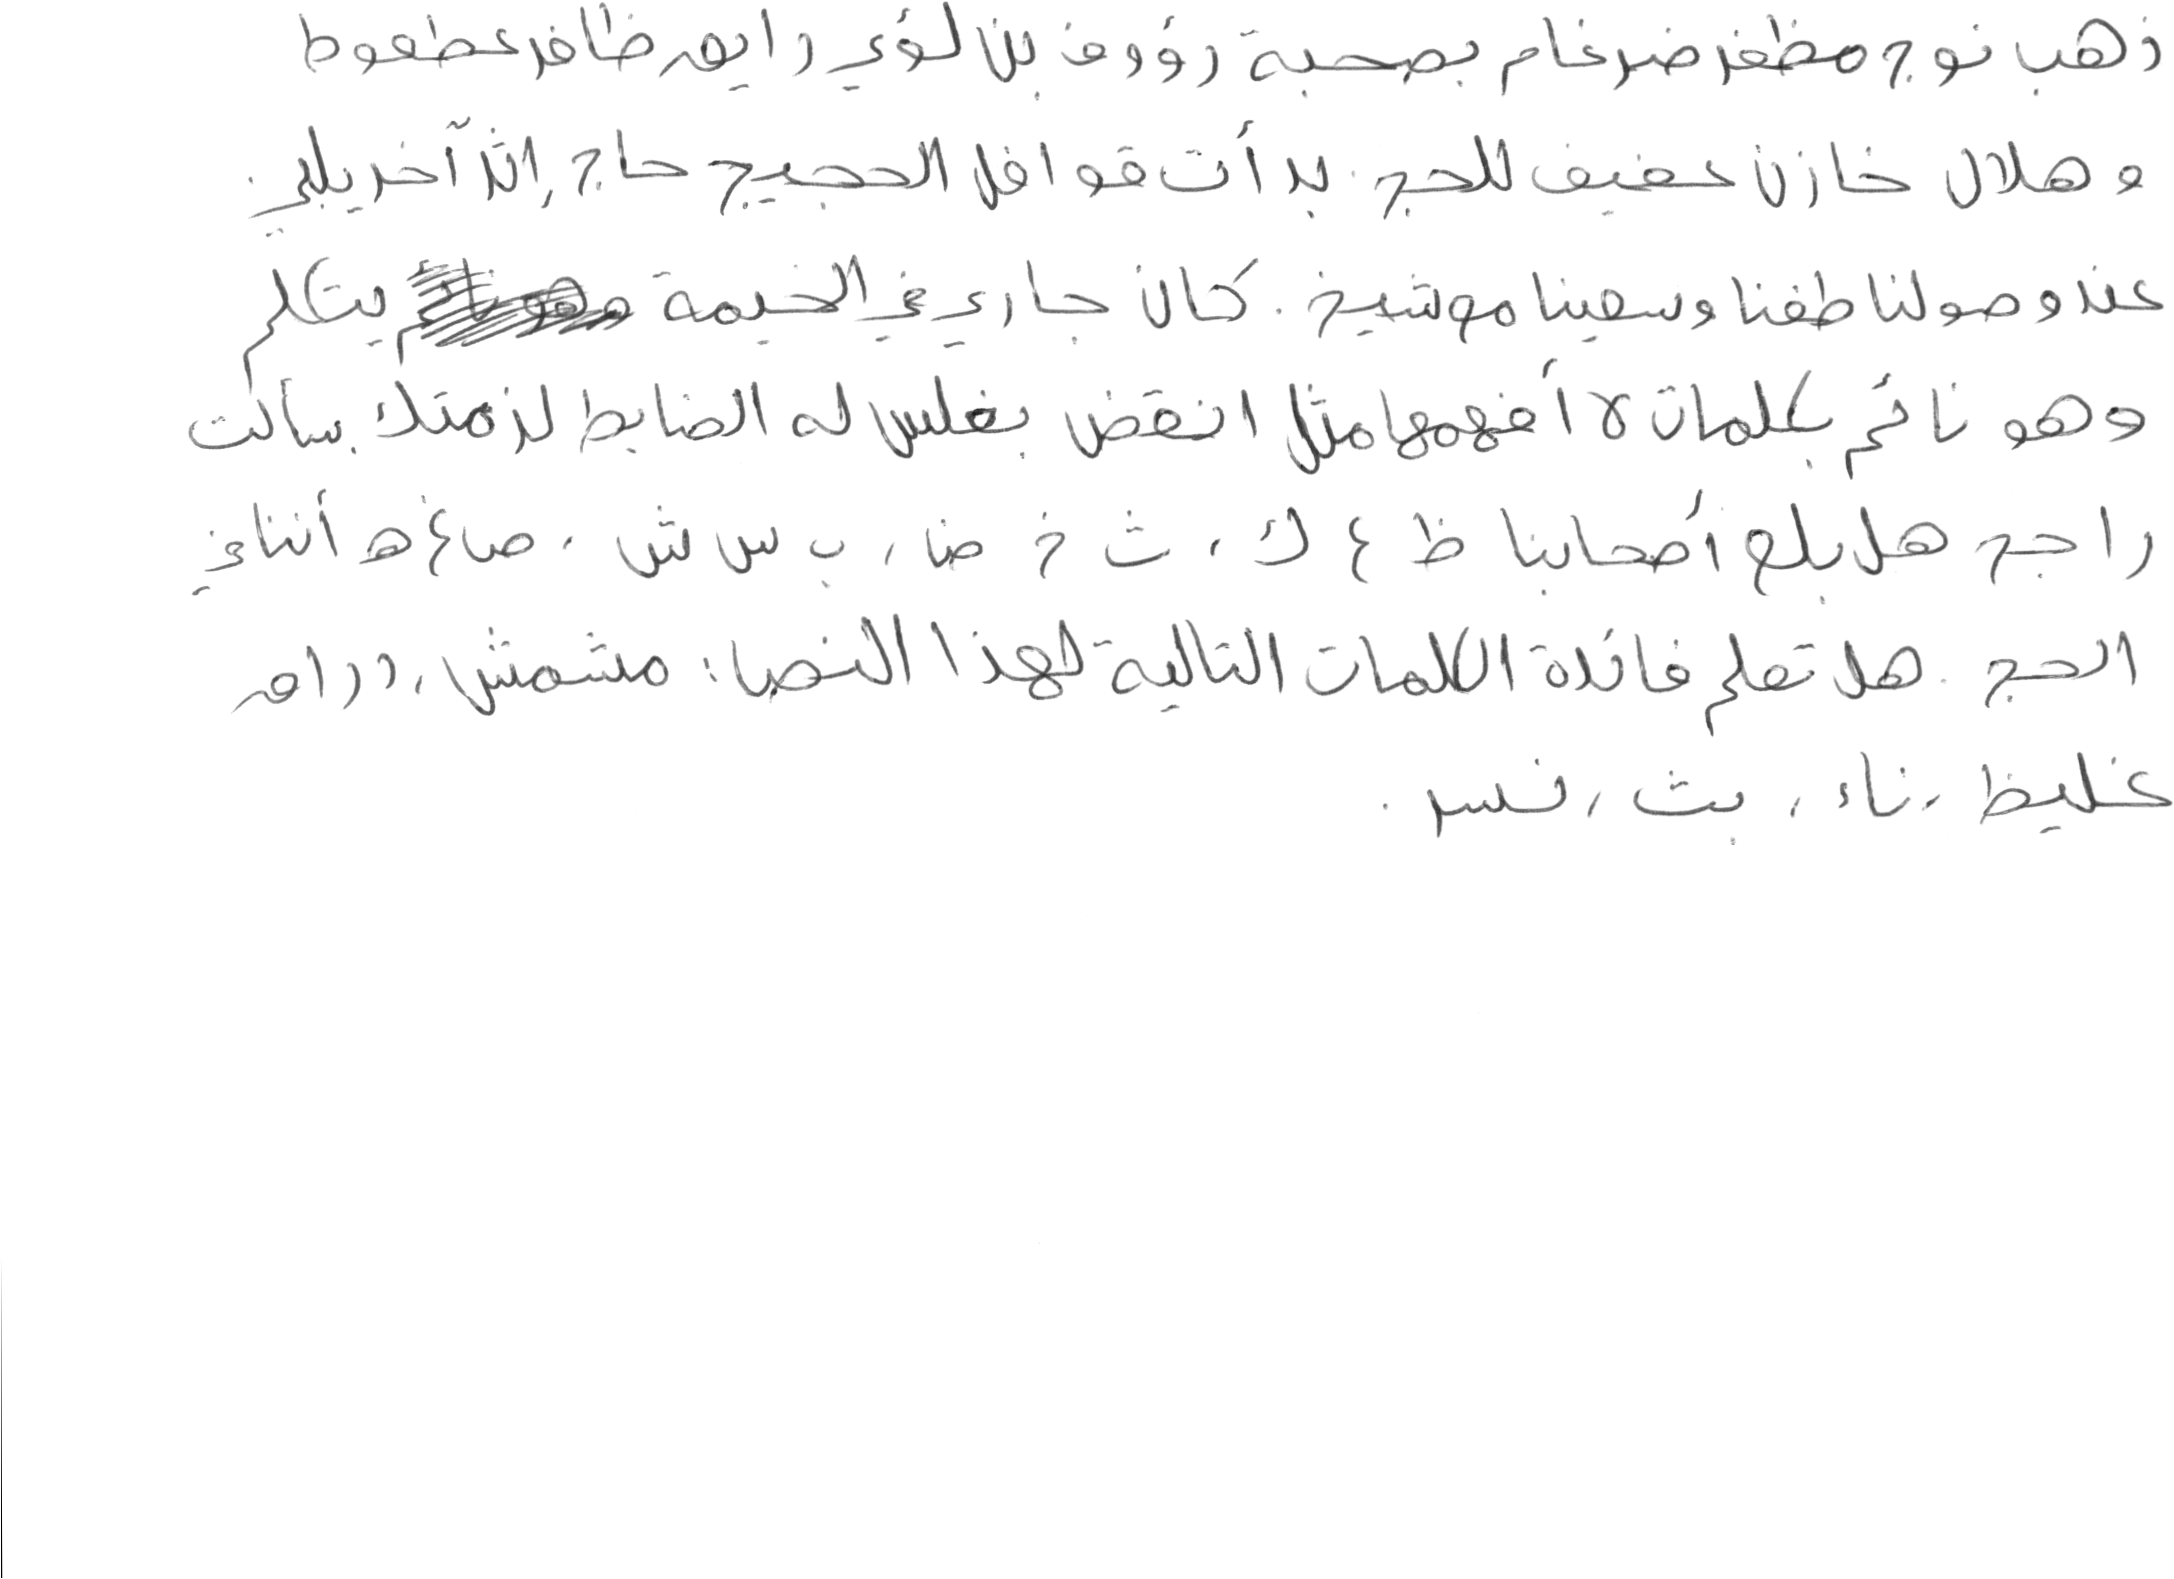 ذهب نوح مظفر ضرغام بصحبة رؤوف بن لؤي رايه ظافر عطعوط
وهلال خازن عفيف للحج. بدأت قوافل الحجيج حاج إثر آخر يلبي.
عند وصولنا طفنا وسعينا موشيح. كان جاري في الخيمة يتكلم
وهو نائم بكلمات لا أفهمها مثل انقض بغلس له الضابط لزمتك. سألت
راجح هل بلع أصحابنا ظ ع ك، ث خ ض، ب س ش، ص غ ه أثناء في
الحج. هل تعلم فائدة الكلمات التالية لهذا النص: مشمش، دراه
غليظ، ناء، بث، نسر.